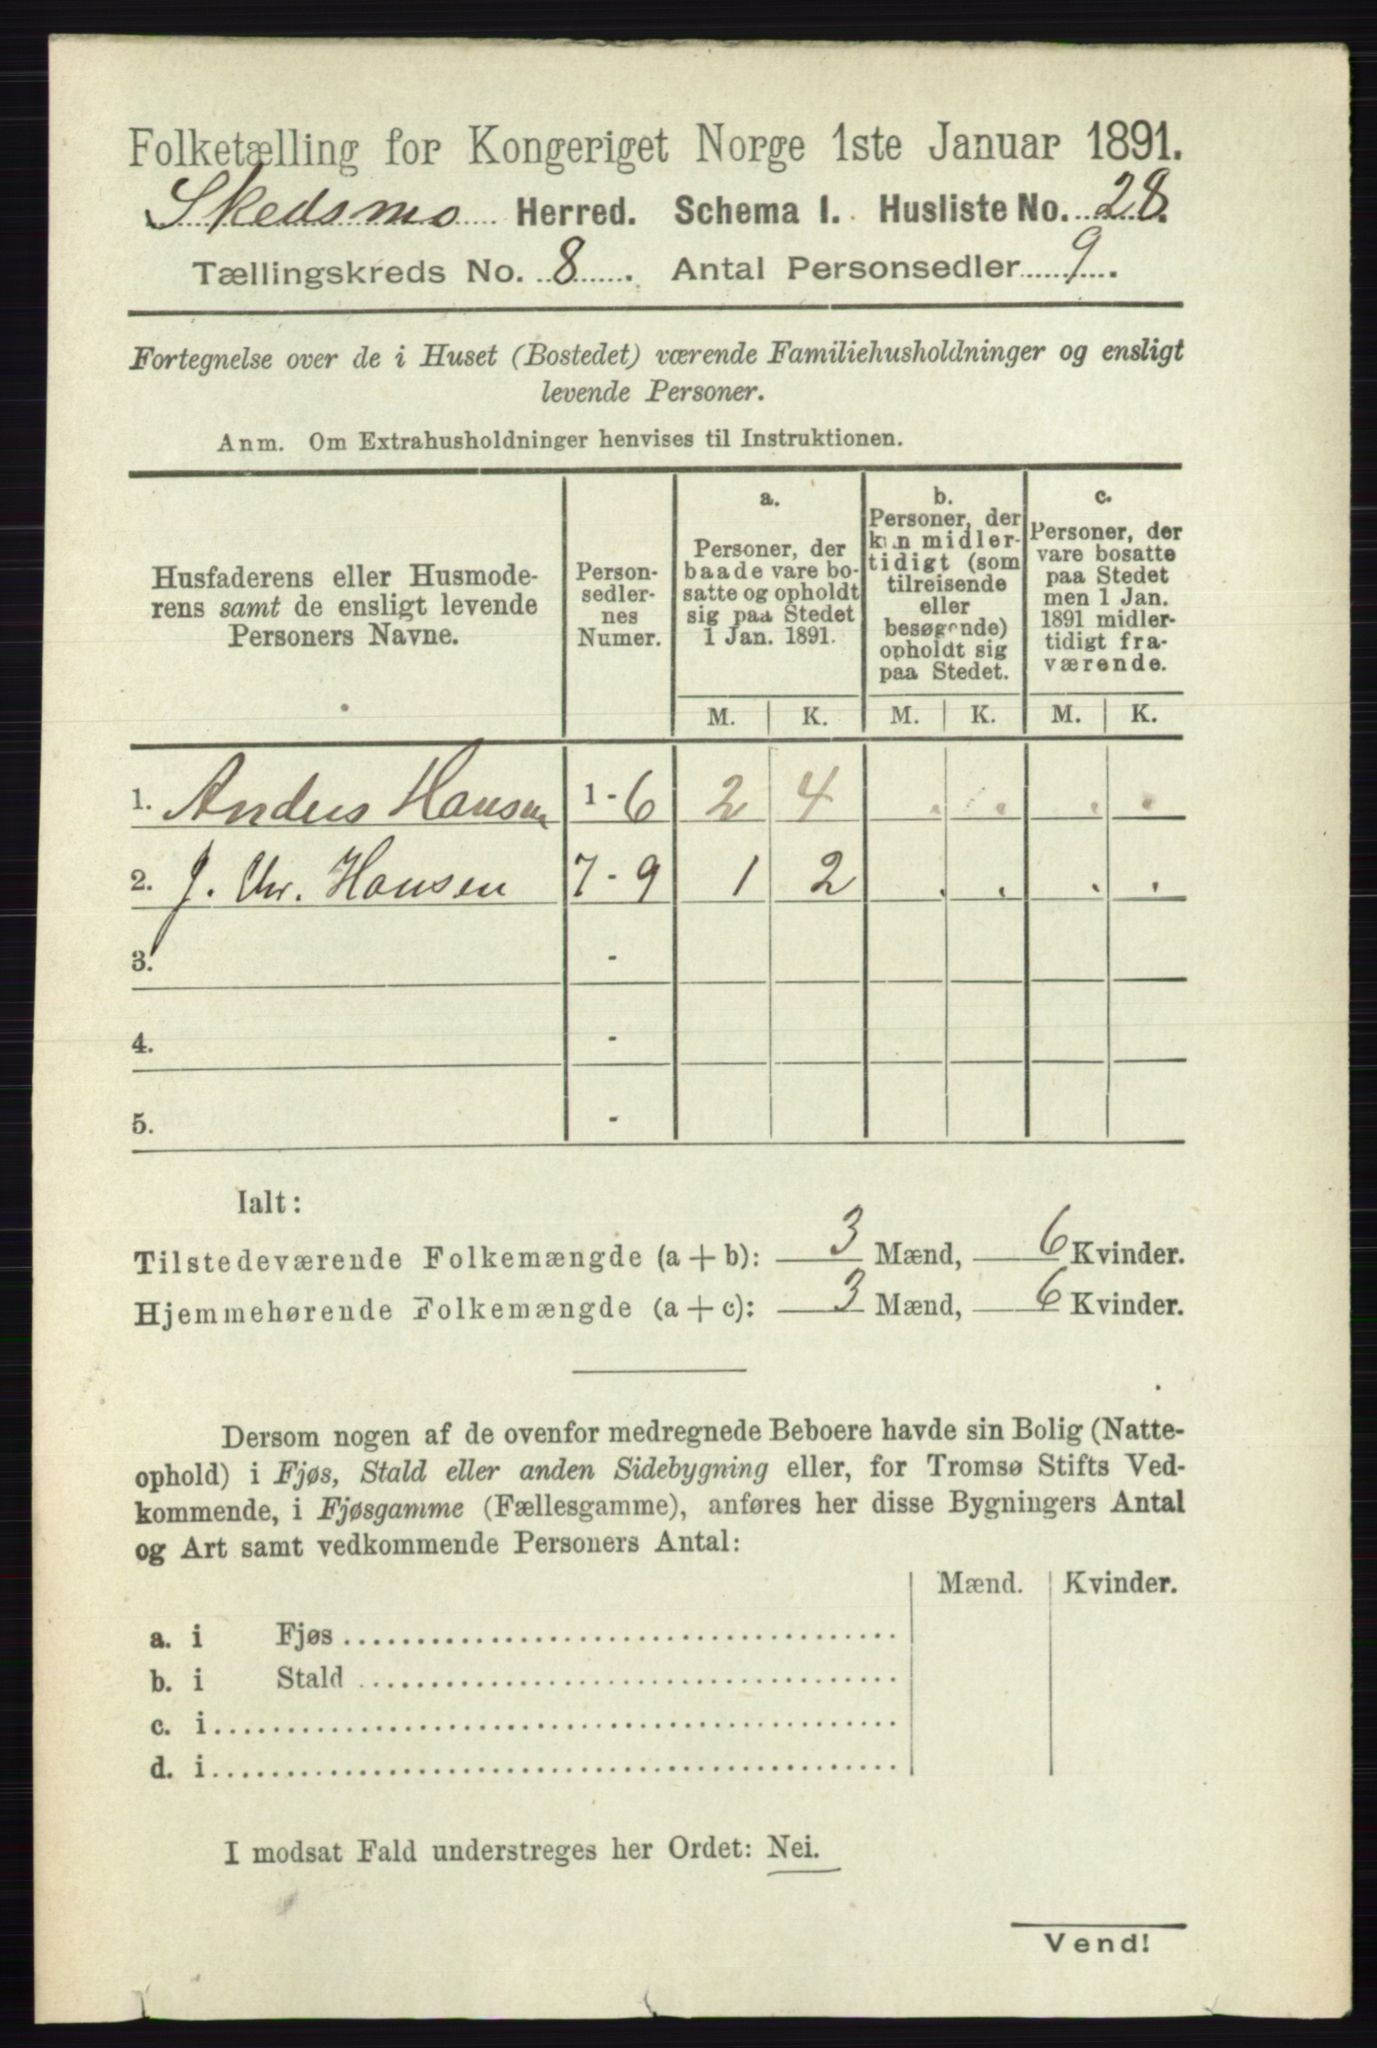 Folketælling for Kongeriget Norge 1ste Januar 1891.
Skedsmo Herred. Schema I. Husliste No. 28.
Tællingskreds No. 8. Antal Personsedler 9.
Fortegnelse over de i Huset (Bostedet) værende Familiehusholdninger og ensligt
levende Personer.
Anm. Om Extrahusholdninger henvises til Instruktionen.
Husfaderens eller Husmode-
rens samt de ensligt levende
Personers Navne.
Person-
sedler-
nes
Numer.
a.
Personer, der
baade vare bo-
satte og opholdt
sig paa Stedet
1 Jan. 1891.
b.
Personer, der
kun midler-
tidigt (som
tilreisende
eller
besøgende)
opholdt sig
paa Stedet.
c.
Personer, der
vare bosatte
paa Stedet
men 1 Jan.
1891 midler-
tidigt fra-
værende.
M. K. M. K. M. K.
1. Anders Hansen 1-6 2 4 . . . .
2. J. Chr. Hansen 7-9 1 2 . . . .
3. -
4. -
5. -
Ialt:
Tilstedeværende Folkemængde (a + b): 3 Mænd, 6 Kvinder.
Hjemmehørende Folkemængde (a + c): 3 Mænd, 6 Kvinder.
Dersom nogen af de ovenfor medregnede Beboere havde sin Bolig (Natte-
ophold) i Fjøs, Stald eller anden Sidebygning eller, for Tromsø Stifts Ved-
kommende, i Fjøsgamme (Fællesgamme), anføres her disse Bygningers Antal
og Art samt vedkommende Personers Antal:
Mænd. Kvinder.
a. i Fjøs
b. i Stald
c. i
d. i
I modsat Fald understreges her Ordet: Nei.
Vend!